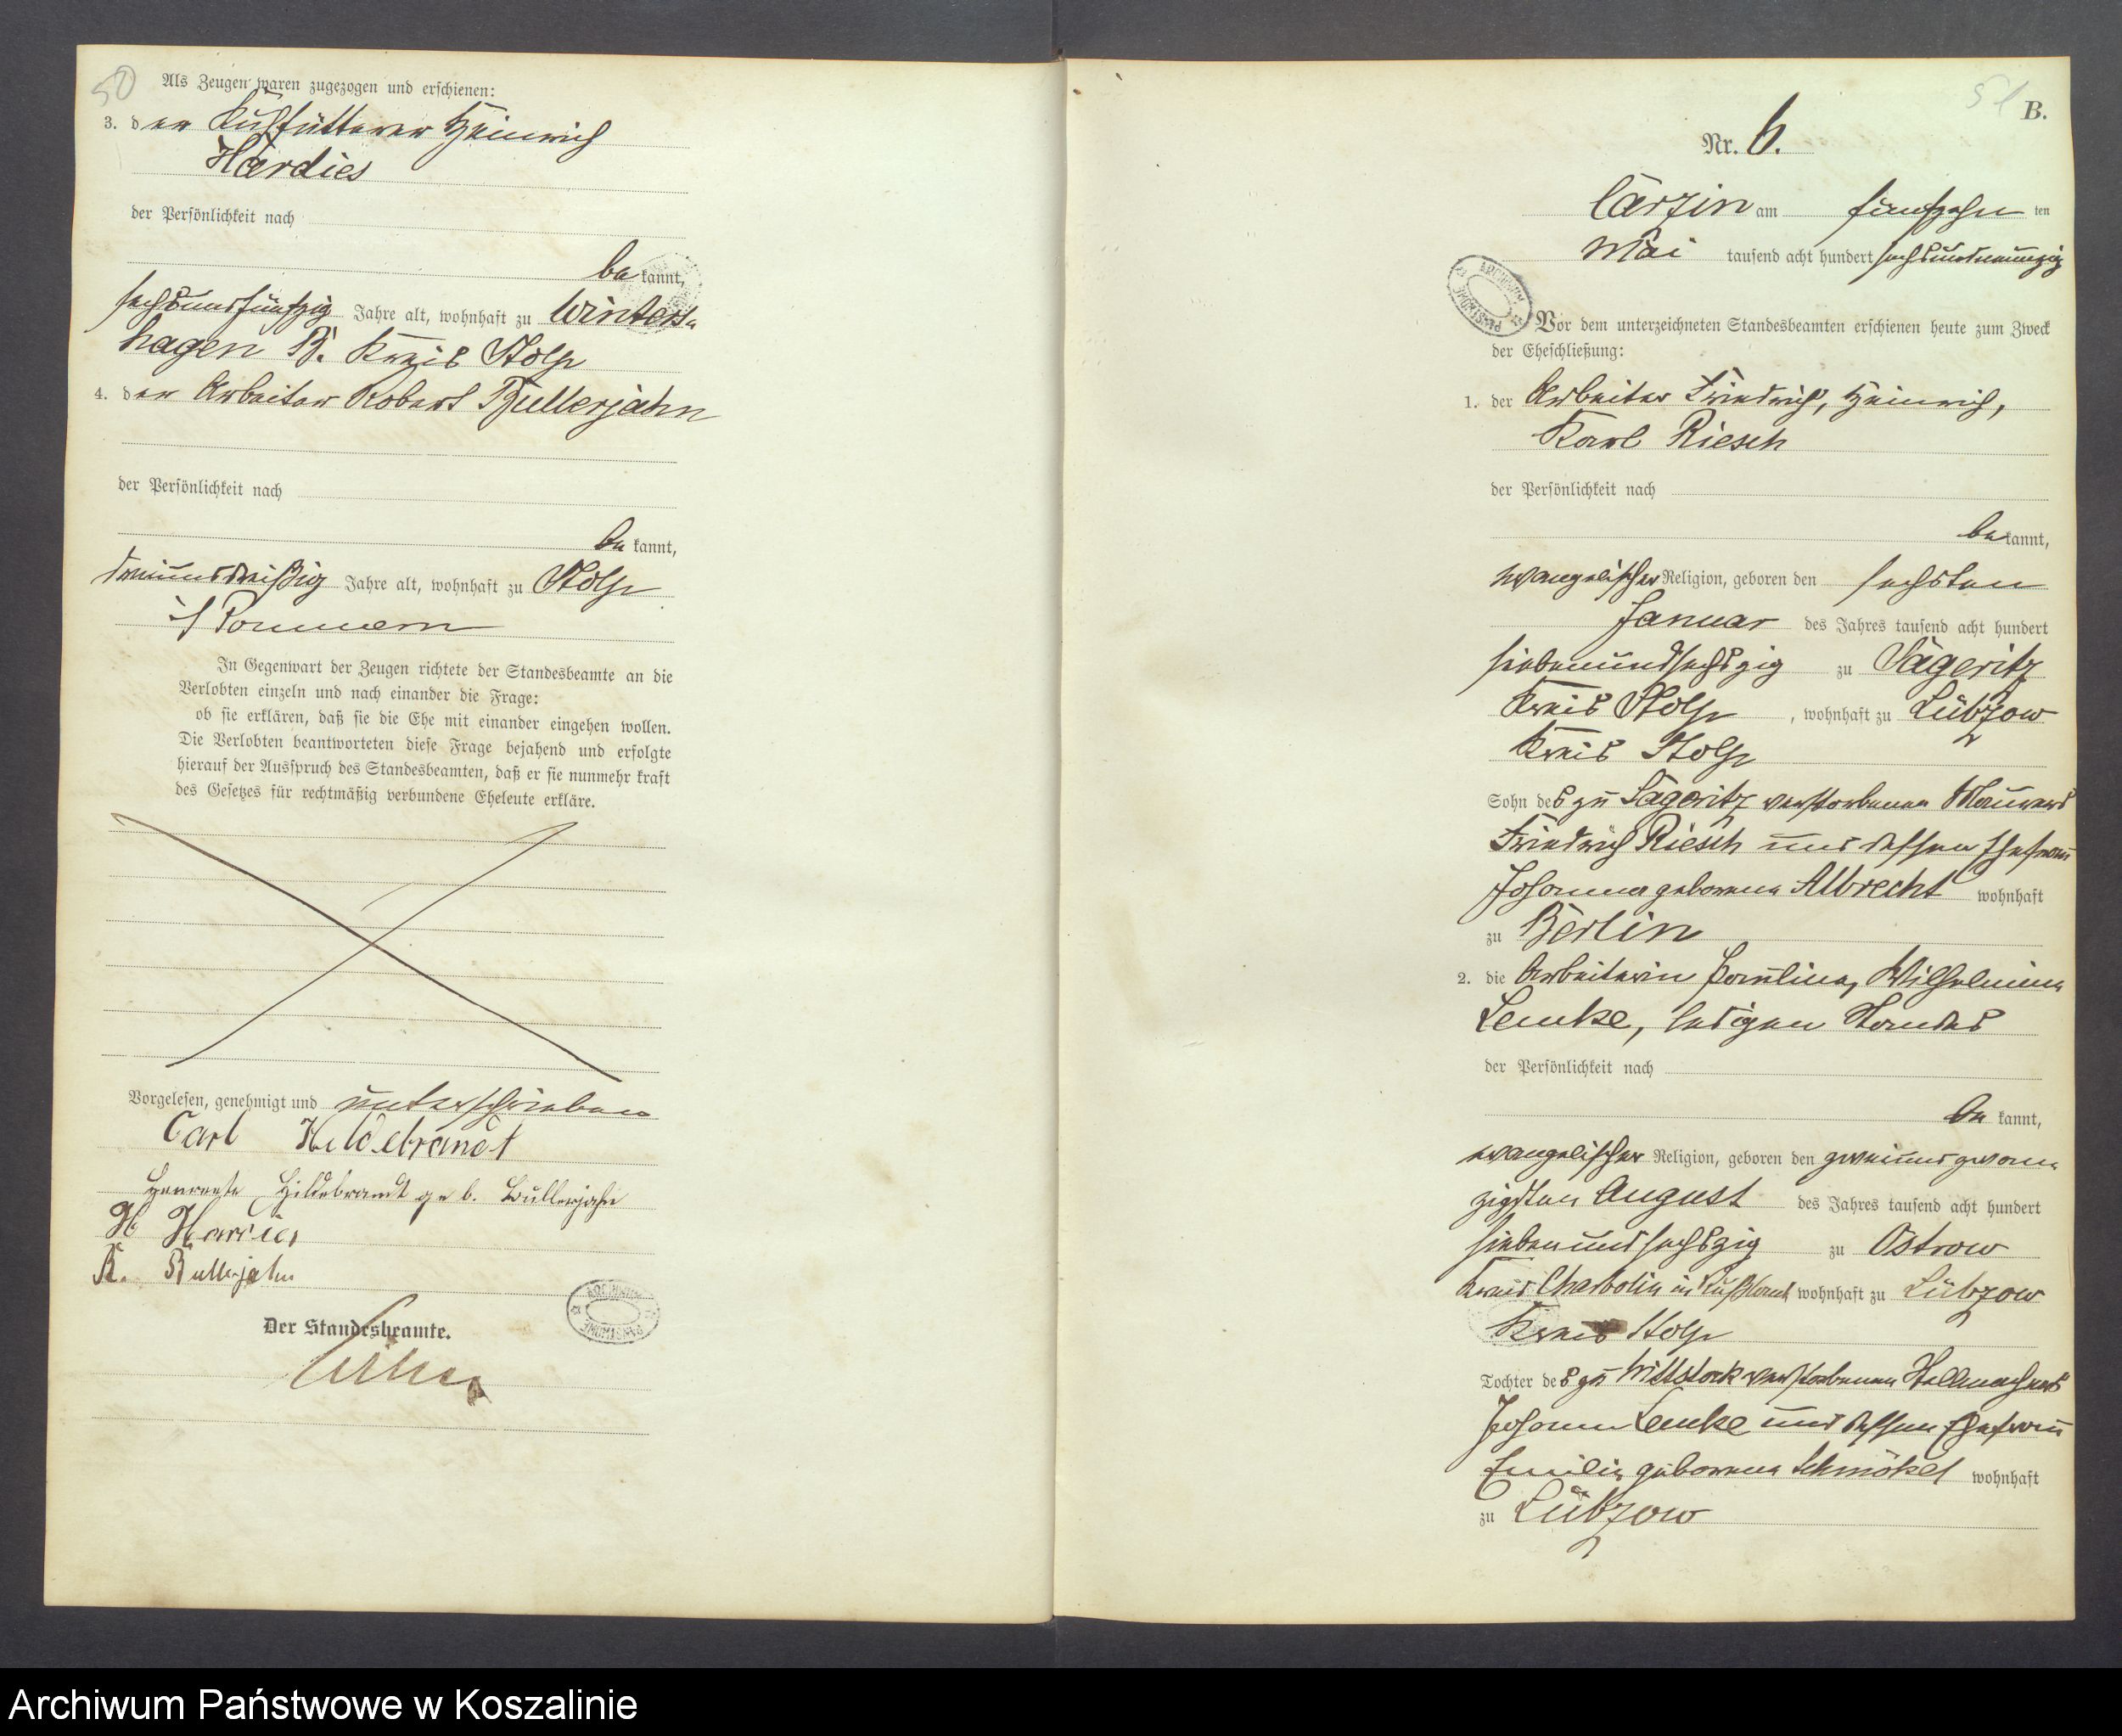 50
Als Zeugen waren zugezogen und erschienen:
3. der Kuhfütterer Heinrich
Hardies
der Persönlichkeit nach
be kannt,
sechsundfünfzig Jahre alt, wohnhaft zu Winters-
hagen B. Kreis Stolp
4. der Arbeiter Robert Bullerjahn
der Persönlichkeit nach
be kannt,
dreiunddreißig Jahre alt, wohnhaft zu Stolp
i/Pommern
In Gegenwart der Zeugen richtete der Standesbeamte an die
Verlobten einzeln und nach einander die Frage:
ob sie erklären, daß sie die Ehe mit einander eingehen wollen.
Die Verlobten beantworteten diese Frage bejahend und erfolgte
hierauf der Ausspruch des Standesbeamten, daß er sie nunmehr kraft
des Gesetzes für rechtmäßig verbundene Eheleute erkläre.
Vorgelesen, genehmigt und unterschrieben
Carl Hildebrandt
Hildebrandt geb. Bullerjahn
H Hardies
R. Bullerjahn
Der Standesbeamte.
51
B.
Nr. 6.
Carzin am fünfzehn ten
Mai tausend acht hundert sechsundneunzig
Vor dem unterzeichneten Standesbeamten erschienen heute zum Zweck
der Eheschließung:
1. der Arbeiter Friedrich, Heinrich,
Karl Riesch
der Persönlichkeit nach
be kannt,
evangelischer Religion, geboren den sechsten
Januar des Jahres tausend acht hundert
siebenundsechszig zu Sageritz
Kreis Stolp, wohnhaft zu Lübzow
Kreis Stolp
Sohn des zu Sageritz verstorbenen Maurers
Friedrich Riesch und dessen Ehefrau
Johanna geborene Albrecht wohnhaft
zu Berlin
2. die Arbeiterin Pauline, Wilhelmine
Lemke, ledigen Standes
der Persönlichkeit nach
be kannt,
evangelischer Religion, geboren den zweiundzwan-
zigsten August des Jahres tausend acht hundert
siebenundsechszig zu Ostrow
Kreis in Rußland wohnhaft zu Lübzow
Kreis Stolp
Tochter des zu Wittstock verstorbenen Stellmachers
Johann Lemke und dessen Ehefrau
Emilie geborene Schmökel wohnhaft
zu Lübzow
Archiwum Państwowe w Koszalinie